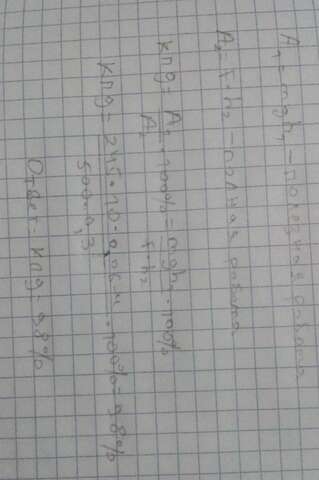 A₁ = mgh₁ - полезная работа
A₂ = F·h₂ - полная работа
КПД = A₁/A₂ · 100% = mgh₁/F·h₂ · 100%
КПД = 245·10·0,06 м/500·0,3 · 100% = 98%
Ответ: КПД = 98%